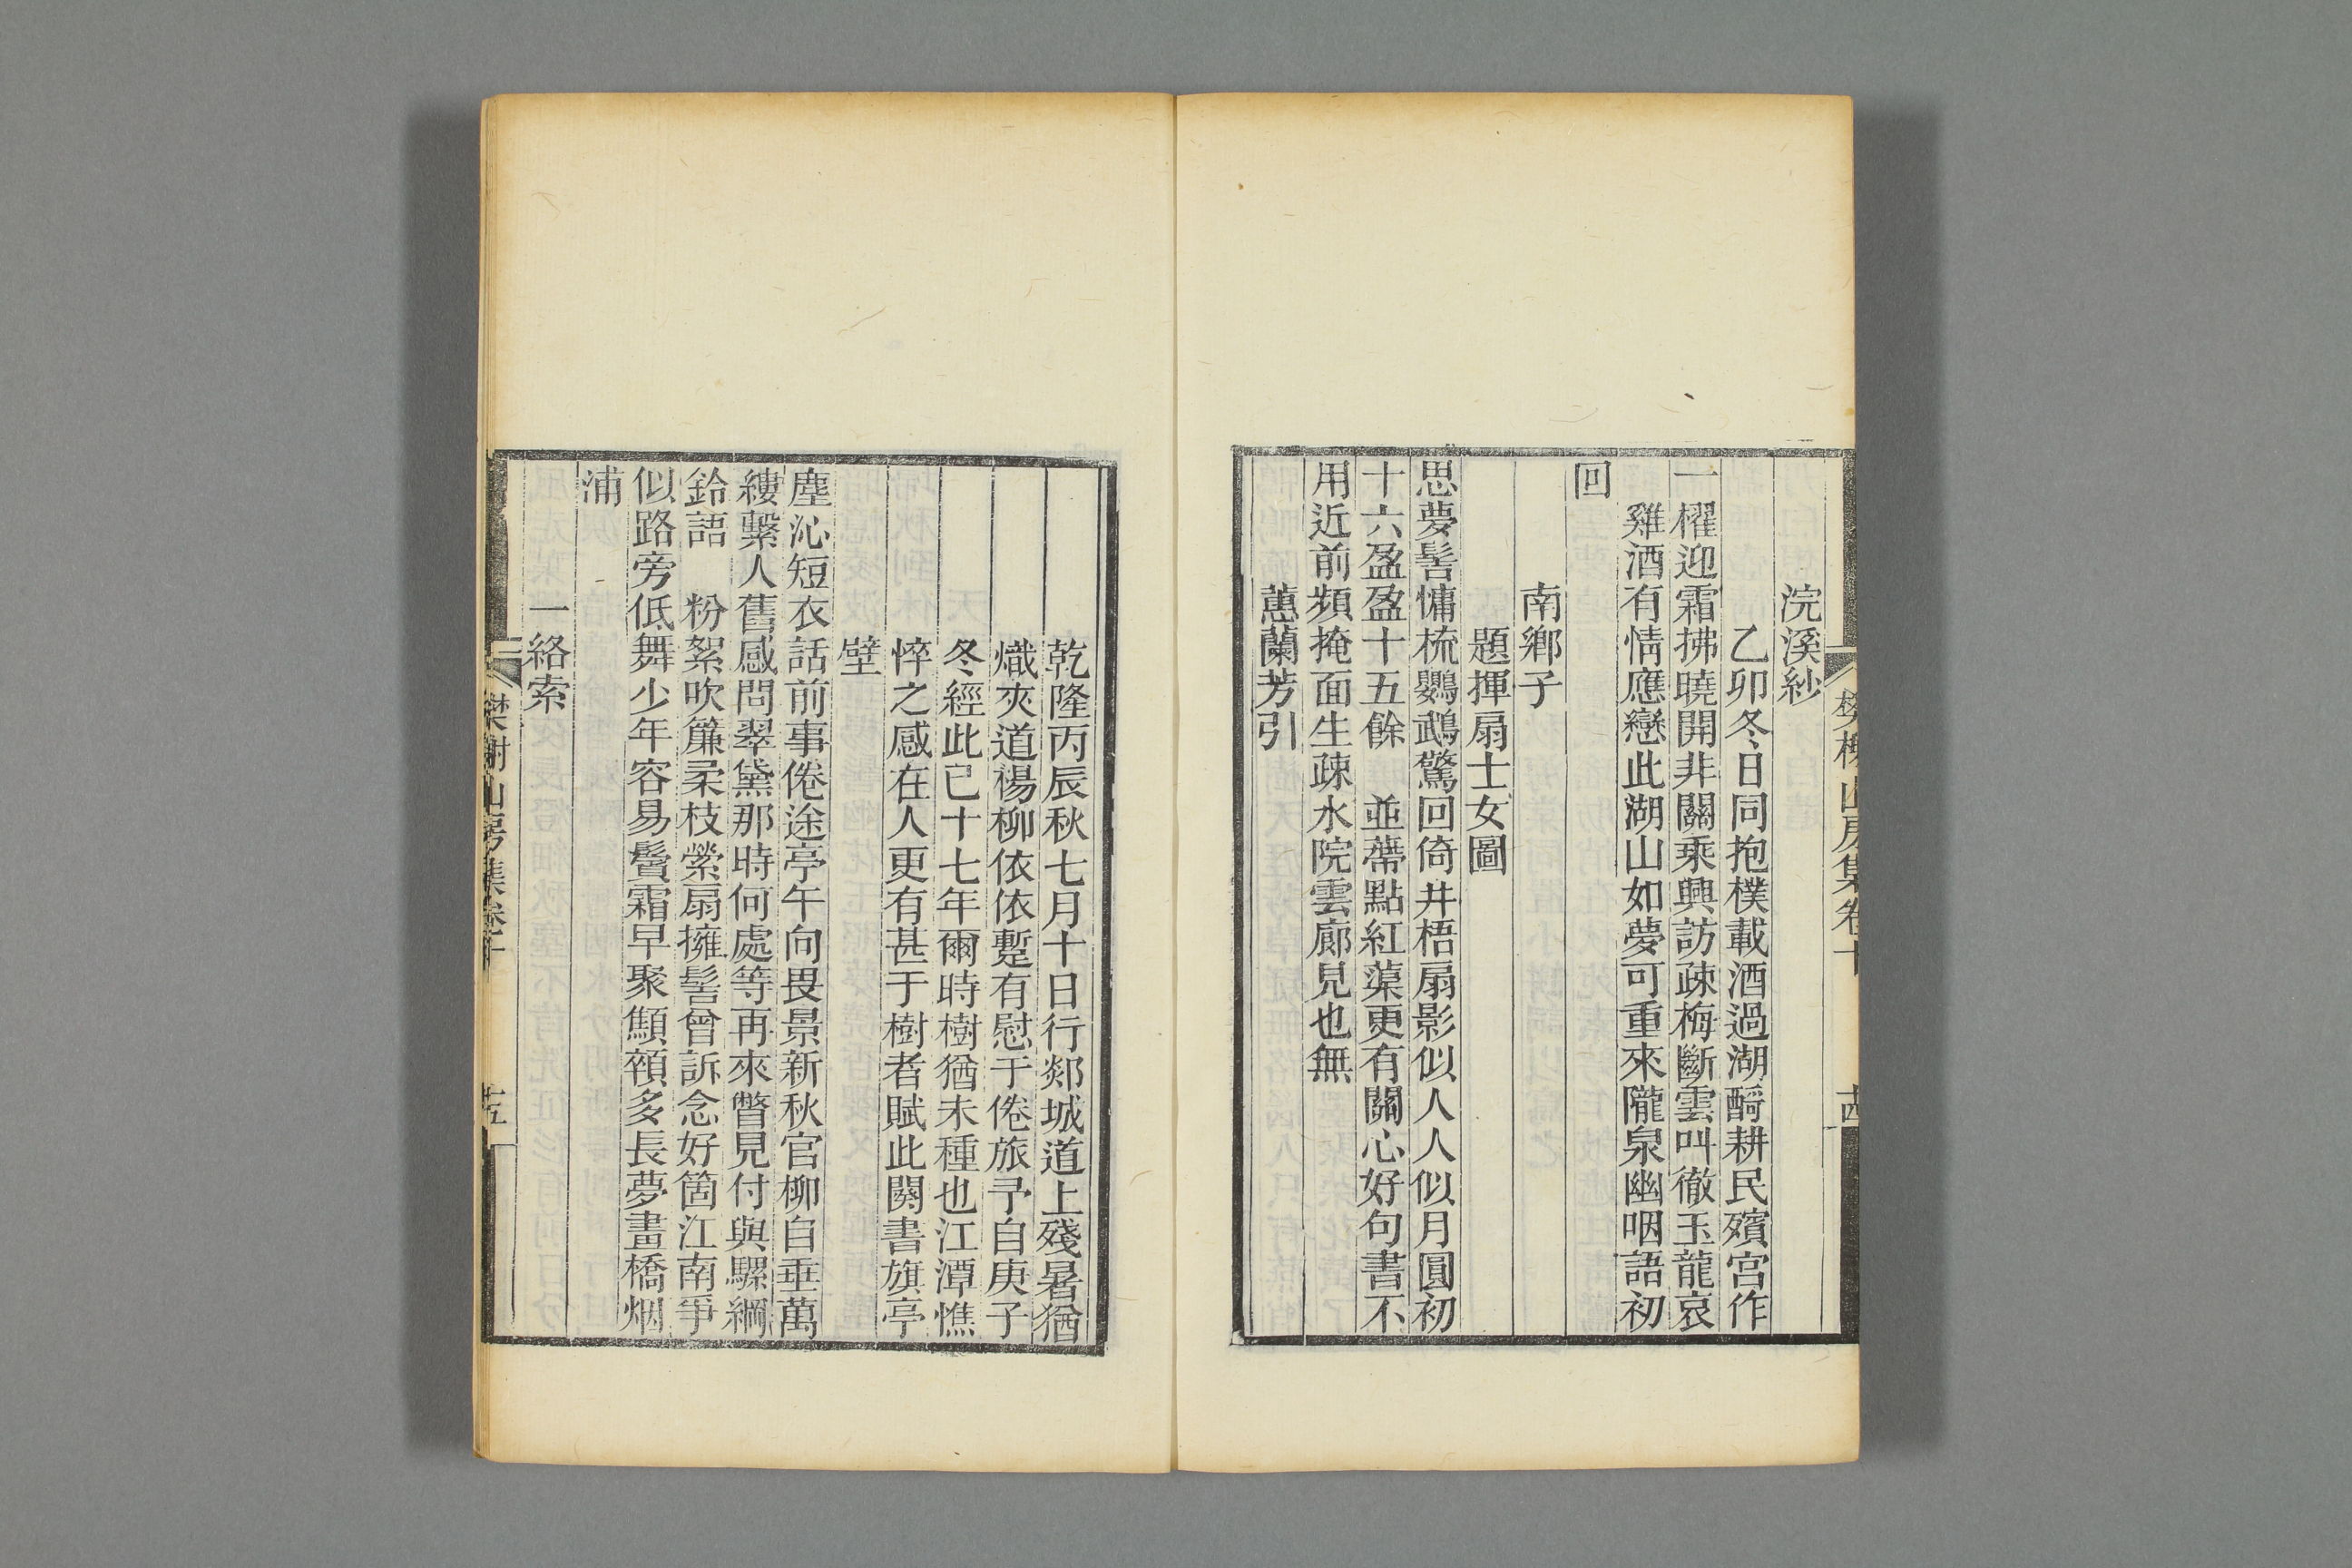 樊榭山房集卷十
十四
浣溪紗
乙卯冬日同抱樸載酒過湖酹耕民殯宮作
一櫂迎霜拂曉開非關乘興訪疎梅斷雲叫徹玉龍哀
雞酒有情應戀此湖山如夢可重來隴泉幽咽語初
回
南鄉子
題揮扇士女圖
思夢髻慵梳鸚鵡驚回倚井梧扇影似人人似月圓初
十六盈盈十五餘　並蒂點紅蕖更有關心好句書不
用近前頻掩面生疎水院雲廊見也無
蕙蘭芳引
乾隆丙辰秋七月十日行郯城道上殘暑猶
熾夾道楊柳依依蹔有慰于倦旅予自庚子
冬經此已十七年爾時樹猶未種也江潭憔
悴之感在人更有甚于樹者賦此闋書旗亭
壁
塵沁短衣話前事倦途亭午向畏景新秋官柳自垂萬
縷繫人舊感問翠黛那時何處等再來瞥見付與騾綱
鈴語　粉絮吹簾柔枝縈扇擁髻曾訴念好箇江南爭
似路旁低舞少年容易鬢霜早聚顦顇多長夢畫橋烟
浦
一絡索
樊榭山房集卷十
十五